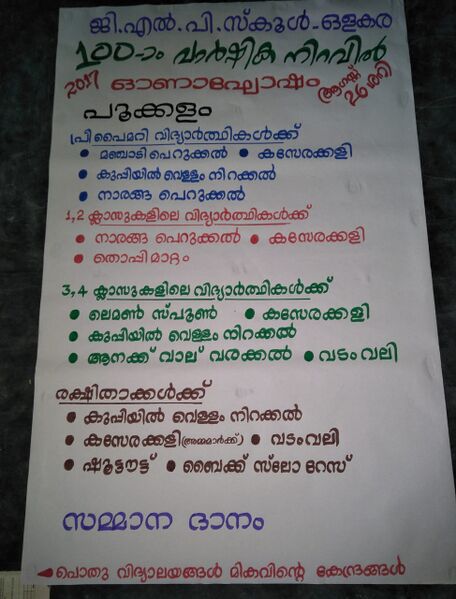 ജി.എൽ.പി.സ്കൂൾ-ഒളകര
100-ാം വാർഷിക നിറവിൽ
2017 ഓണാഘോഷം ആഗസ്റ്റ് 26 ശനി
പൂക്കളം
പ്രീ പ്രൈമറി വിദ്യാർത്ഥികൾക്ക്
• മഞ്ചാടി പെറുക്കൽ • കസേരക്കളി
• കുപ്പിയിൽ വെള്ളം നിറക്കൽ
• നാരങ്ങ പെറുക്കൽ
1,2 ക്ലാസുകളിലെ വിദ്യാർത്ഥികൾക്ക്
• നാരങ്ങ പെറുക്കൽ • കസേരക്കളി
• തൊപ്പി മാറ്റം
3,4 ക്ലാസുകളിലെ വിദ്യാർത്ഥികൾക്ക്
• ലെമൺ സ്പൂൺ • കസേരക്കളി
• കുപ്പിയിൽ വെള്ളം നിറക്കൽ
• ആനക്ക് വാല് വരക്കൽ • വടംവലി
രക്ഷിതാക്കൾക്ക്
• കുപ്പിയിൽ വെള്ളം നിറക്കൽ
• കസേരക്കളി (അമ്മമാർക്ക്) • വടംവലി
• ഷൂട്ടൗട്ട് • ബൈക്ക് സ്ലോ റേസ്
സമ്മാന ദാനം
പൊതു വിദ്യാലയങ്ങൾ മികവിന്റെ കേന്ദ്രങ്ങൾ